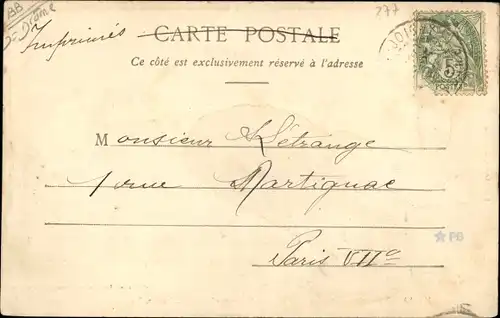 BB
D-Drôme
277
Imprimés
CARTE POSTALE
Ce côté est exclusivement réservé à l'adresse
5
Monsieur Létrange
1 rue Martignac
Paris VIIe
PB